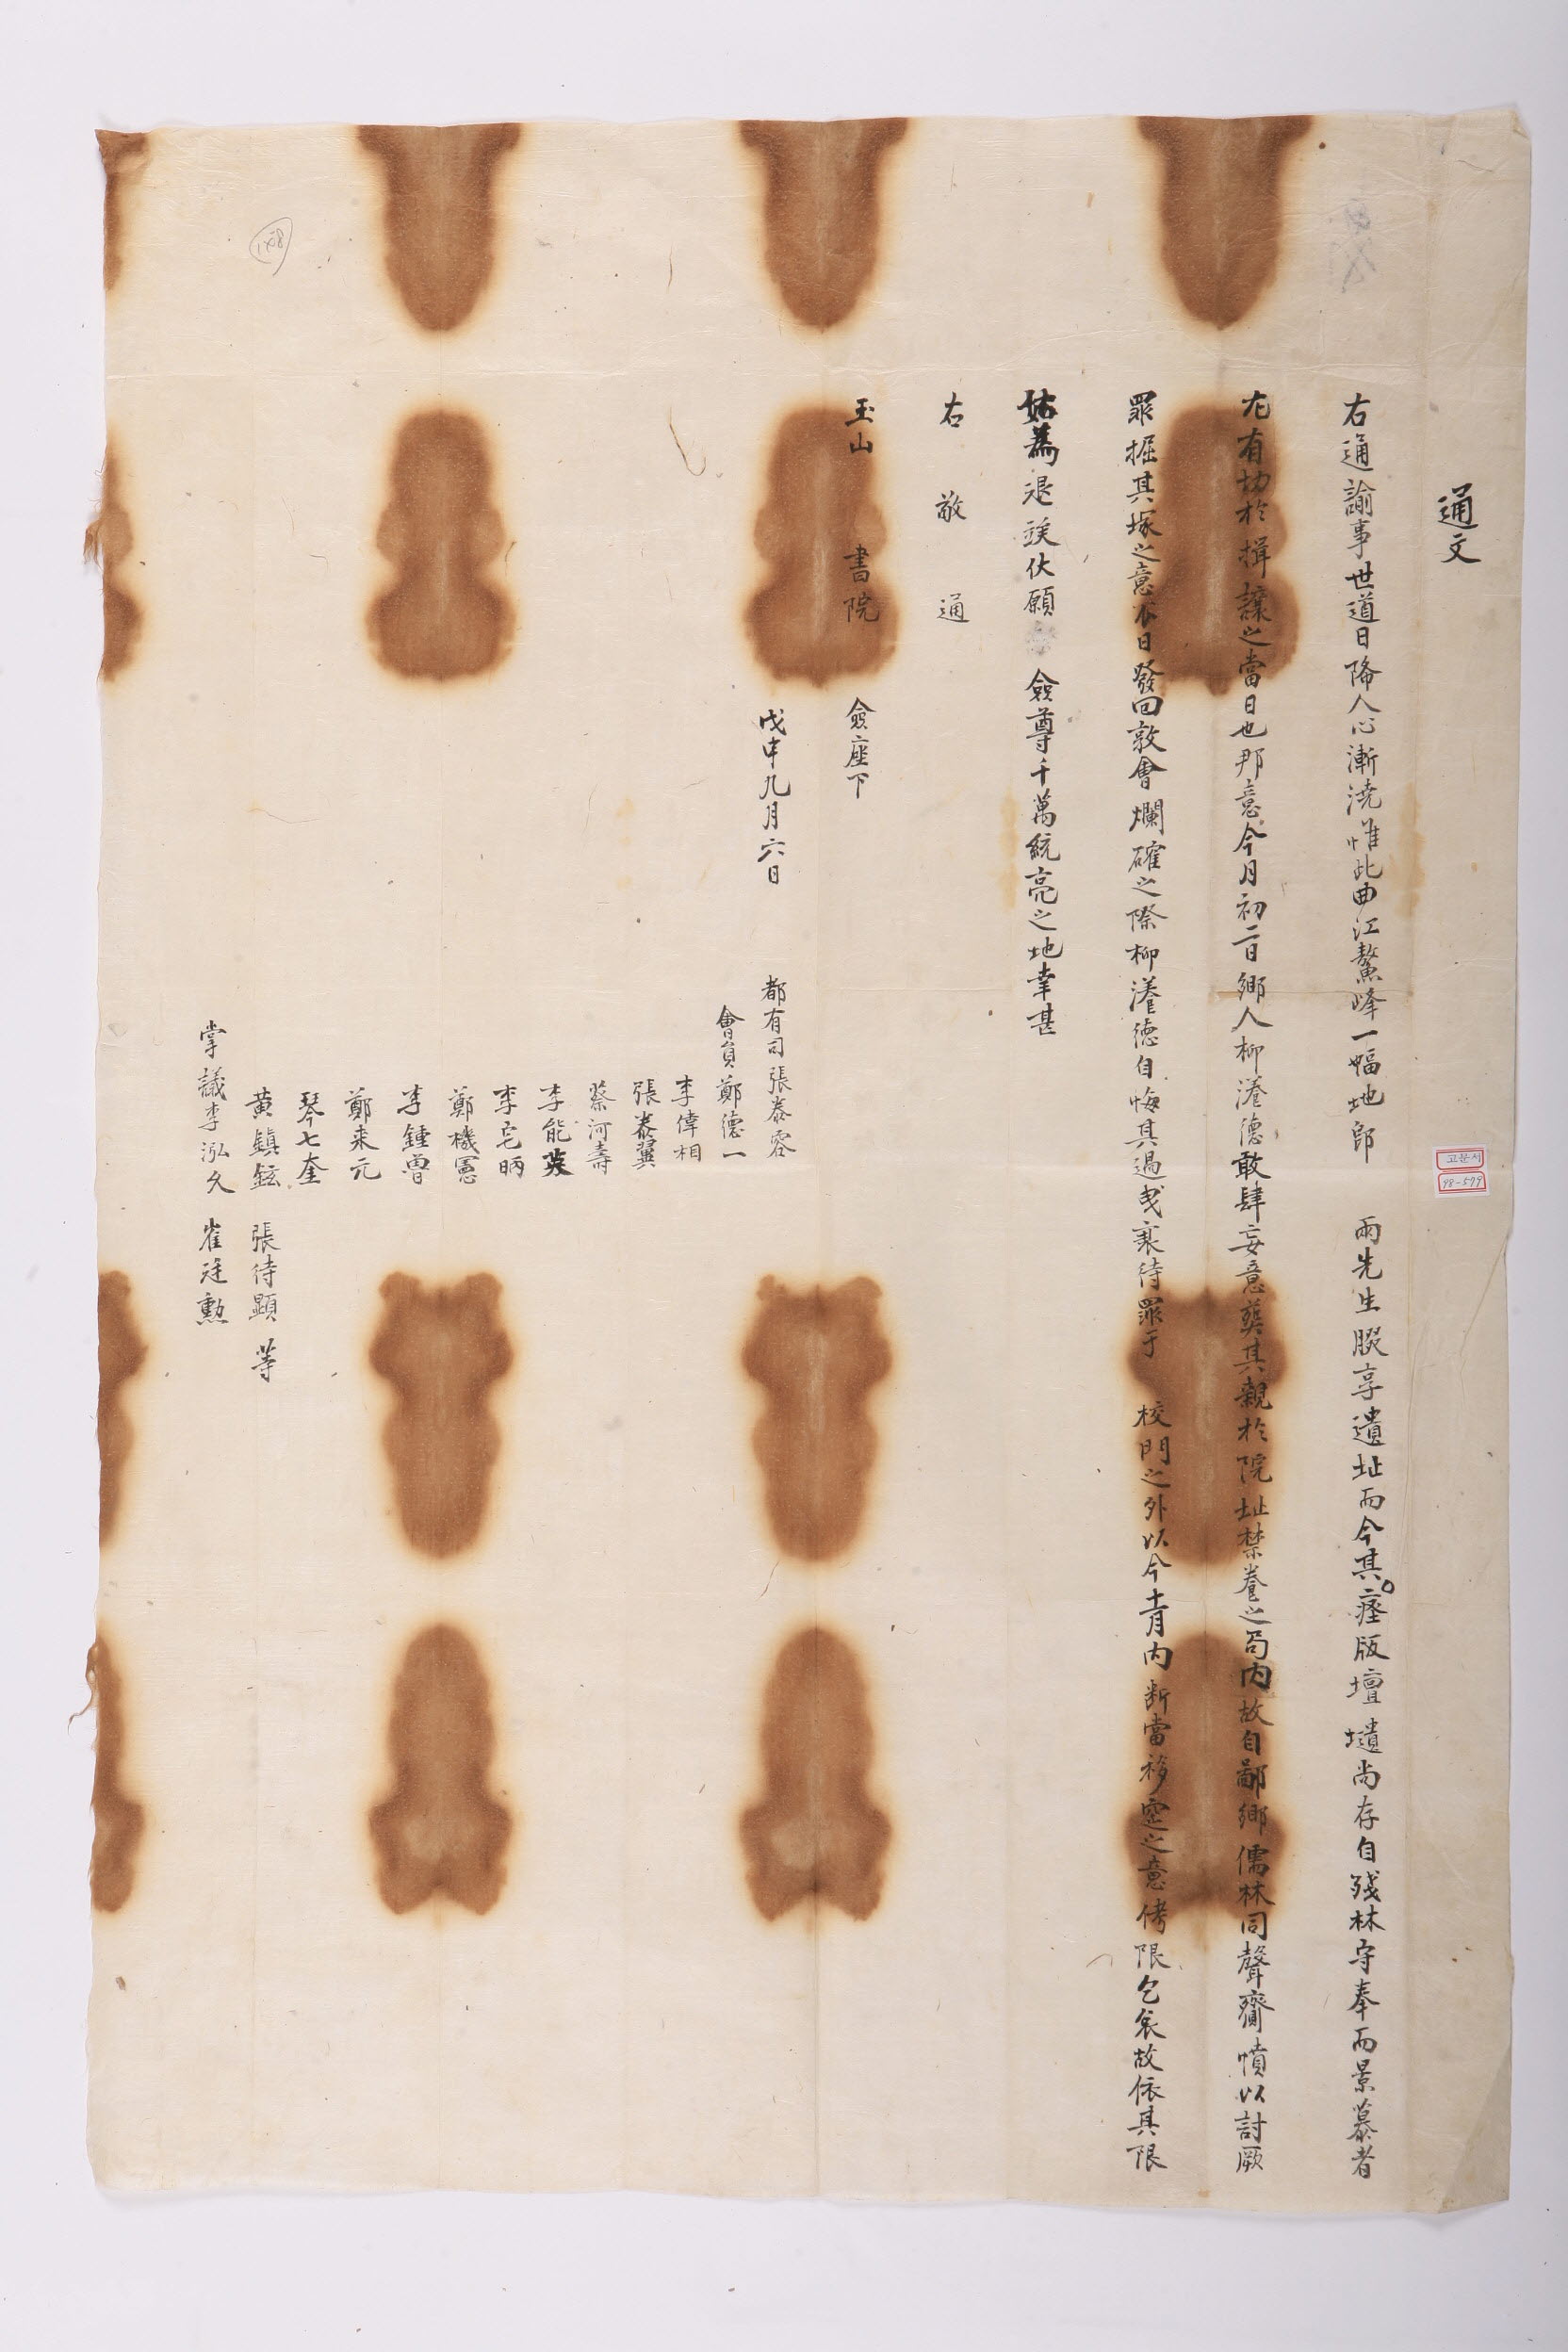 通文
右通諭事世道日降人心漸澆惟此曲江鰲峰一幅地郎 兩先生腏享遺址而今其瘞版壇壝尚存自殘林守奉而景慕者
尤有切於揖讓之當日也那意今月初二日鄕人柳瀁德敢肆妄意葬其親於院址禁養之局內故自鄙鄕儒林同聲齊憤以討厥
罪掘其塚之意不日發回敦會爛確之際柳瀁德自悔其過曳衰待罪于 校門之外以今十一月內斷當移窆之意侤限乞哀故依其限
姑爲退竢伏願 僉尊千萬統亮之地幸甚
右敬通
玉山書院 僉座下
戊申九月六日
都有司張泰容
會員鄭德一
李偉相
張泰翼
蔡河壽
李能英
李宅昞
鄭機憲
李鍾曾
鄭來元
琴七奎
黃鎭鉉 張待顯 等
掌議李泓久 崔廷勳
고문서
98-579
1158